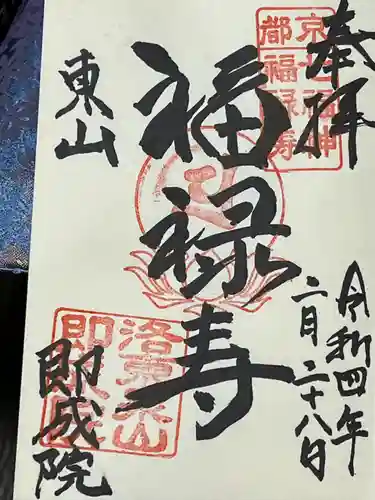 奉拝
令和四年
二月二十八日
京都七福神
福禄寿
福禄寿
東山
洛東泉山
即成院
即成院